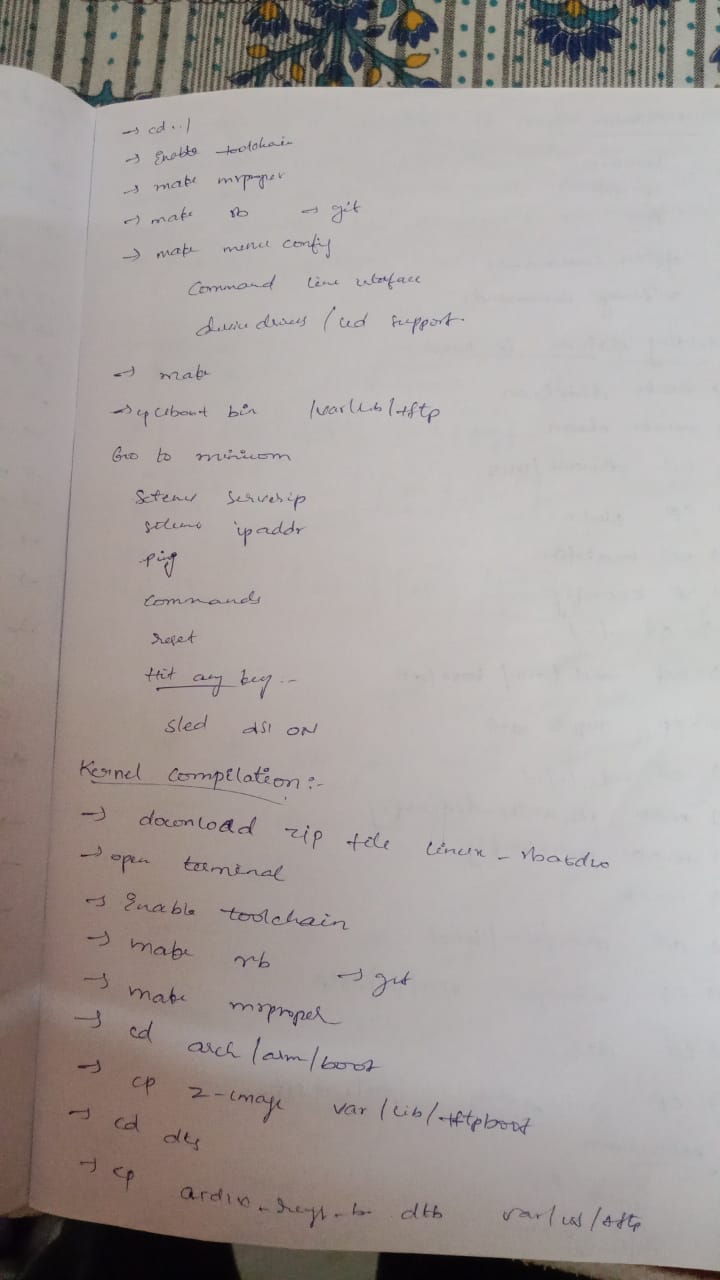 → cd ../
→ Enable toolchain
→ make mrproper
→ make rb → git
→ make menu config
Command line interface
device drivers / led support
→ make
→ cp uboot bin /var/lib/tftp
Go to minicom
Setenv serverip
setenv ipaddr
ping
commands
reset
Hit any key :-
sled ds1 ON
Kernel compilation :-
→ download zip file linux -
→ open terminal
→ Enable toolchain
→ make rb → git
→ make mrproper
→ cd arch/arm/boot
→ cp z-image var/lib/tftpboot
→ cd dts
→ cp dtb var/lib/tftp